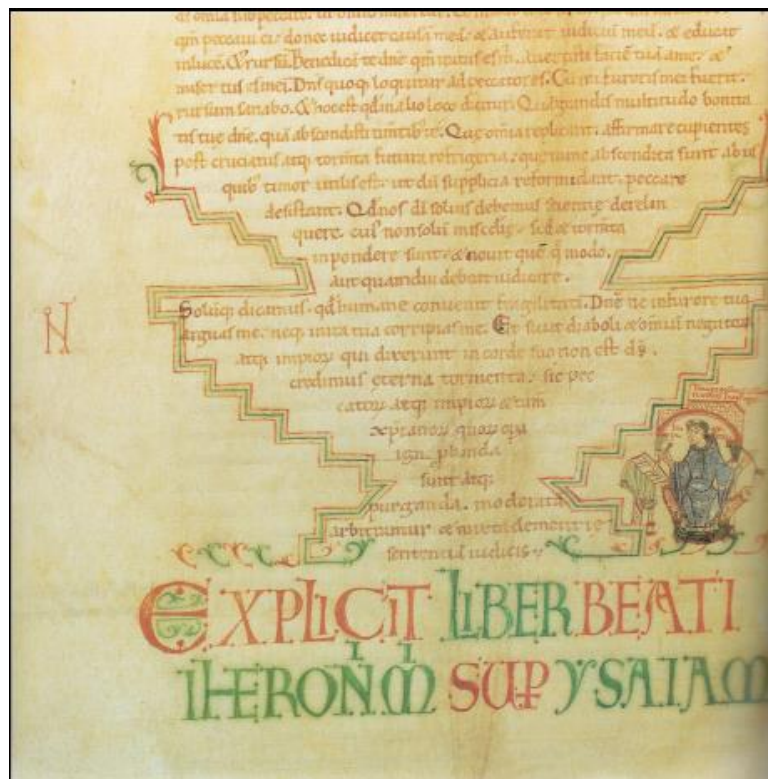 qm̄ peccaui ei donec iudicet causā meā & auferat iudiciū meū. & educat
in lucē. Et rursū. Benedicā te dne qm̄ iratus es m̄. auertisti faciē tuā a me. &
misertus es mei. Dns quoq; loquitur ad peccatores. Cū ira furoris mei fuerit.
rursum sanabo. & hoc est qd in alio loco dicitur. Quā grandis multitudo bonita
tis tue dne. quā abscondisti timentib; te. Que omia replicant. affirmare cupientes
post cruciatus atq; tormta futura refrigeria. que nunc abscondita sunt ab his
quib; timor utilis est. ut dū supplicia reformidant. peccare
desistant. Qd nos di solius debemus scientię derelin
quere. cuius non solū misedię. sed & tormta
in pondere sunt. & nouit quē q modo.
aut quamdiu debeat iudicare.
Soluq; dicamus. qd humane conuenit fragilitati. Dne ne in furore tuo
arguas me. neq; in ira tua corripias me. Et sicut diaboli & omniū negatorꝝ
atq; impiorꝝ qui dixerunt in corde suo non est ds.
credimus eterna tormenta. sic pec
catorꝝ atq; impiorꝝ & tam
xp̄ianorꝝ quorꝝ opa
igne pbanda
sunt atq;
purganda. moderatā
arbitramur & mixtā clementię
sententiā iudicis
N
EXPLICIT LIBER BEATI
IHERONIMI SUP YSAIAM